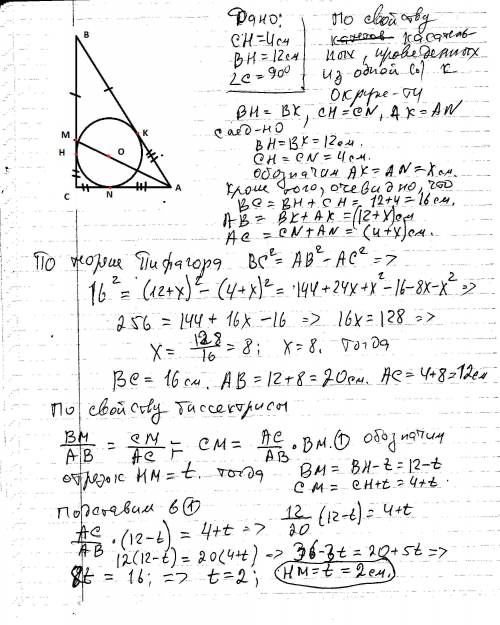 B
M
H
K
O
C
N
A
Дано:
CH=4см
BH=12см
∠C=90°
По свойству
касатель-
ных, проведенных
из одной к
окруж-ти
BH=BK, CH=CN, AK=AN
след-но
BH=BK=12см.
CH=CN=4см.
обозначим AK=AN=Xсм.
Кроме того, очевидно, что
BC=BH+CH=12+4=16см.
AB=BK+AK=(12+X)см
AC=CN+AN=(4+X)см.
По теореме Пифагора BC²=AB²-AC² =>
16²=(12+X)²-(4+X)²=144+24X+X²-16-8X-X² =>
256=144+16X-16 => 16X=128 =>
X=128/16=8; X=8. тогда
BC=16см. AB=12+8=20см. AC=4+8=12см
По свойству биссектрисы
BM/AB = CM/AC; CM= AC/AB·BM.① обозначим
отрезок HM=t. тогда BM=BH-t=12-t
CM=CH+t=4+t.
Подставим в ①
AC/AB·(12-t)=4+t => 12/20(12-t)=4+t
12(12-t)=20(4+t) => 36-3t=20+5t =>
8t=16; => t=2; HM=t=2см.